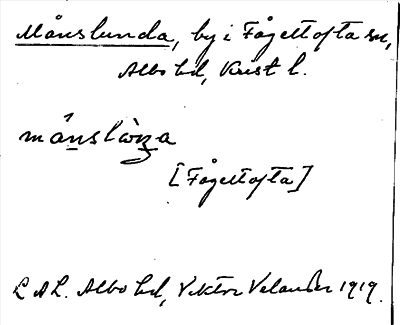 Månslunda, by i Fågeltofta sn,
Albo hd, Krist l.
månslòṉa
[Fågeltofta]
L A L. Albo hd, Viktor Velander 1919.